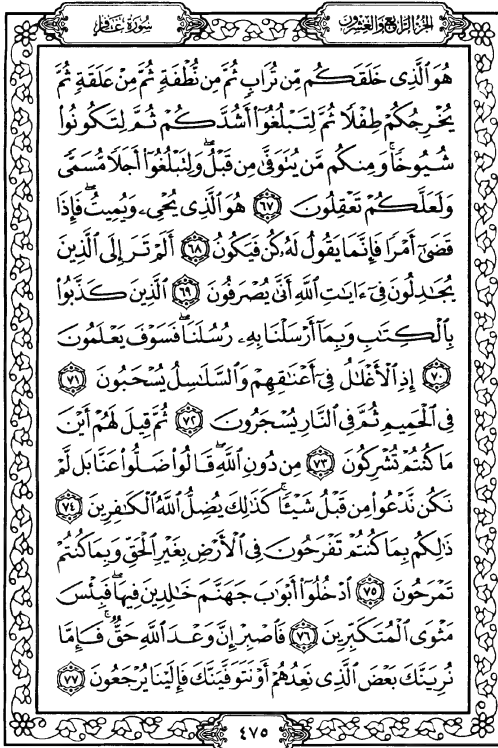 سُورَةُ غَافِرٍ
الجُزْءُ الرَّابِعُ وَالعِشْرُونَ
هُوَ الَّذِى خَلَقَكُم مِّن تُرَابٍ ثُمَّ مِن نُّطْفَةٍ ثُمَّ مِنْ عَلَقَةٍ ثُمَّ
يُخْرِجُكُمْ طِفْلًا ثُمَّ لِتَبْلُغُوٓا۟ أَشُدَّكُمْ ثُمَّ لِتَكُونُوا۟
شُيُوخًا ۚ وَمِنكُم مَّن يُتَوَفَّىٰ مِن قَبْلُ ۖ وَلِتَبْلُغُوٓا۟ أَجَلًا مُّسَمًّى
وَلَعَلَّكُمْ تَعْقِلُونَ ٦٧ هُوَ الَّذِى يُحْىِۦ وَيُمِيتُ ۖ فَإِذَا
قَضَىٰٓ أَمْرًا فَإِنَّمَا يَقُولُ لَهُۥ كُن فَيَكُونُ ٦٨ أَلَمْ تَرَ إِلَى الَّذِينَ
يُجَٰدِلُونَ فِىٓ ءَايَٰتِ اللَّهِ أَنَّىٰ يُصْرَفُونَ ٦٩ الَّذِينَ كَذَّبُوا۟
بِالْكِتَٰبِ وَبِمَآ أَرْسَلْنَا بِهِۦ رُسُلَنَا ۖ فَسَوْفَ يَعْلَمُونَ
٧٠ إِذِ الْأَغْلَٰلُ فِىٓ أَعْنَٰقِهِمْ وَالسَّلَٰسِلُ يُسْحَبُونَ ٧١
فِى الْحَمِيمِ ثُمَّ فِى النَّارِ يُسْجَرُونَ ٧٢ ثُمَّ قِيلَ لَهُمْ أَيْنَ
مَا كُنتُمْ تُشْرِكُونَ ٧٣ مِن دُونِ اللَّهِ ۖ قَالُوا۟ ضَلُّوا۟ عَنَّا بَل لَّمْ
نَكُن نَّدْعُوا۟ مِن قَبْلُ شَيْـًٔا ۚ كَذَٰلِكَ يُضِلُّ اللَّهُ الْكَٰفِرِينَ ٧٤
ذَٰلِكُم بِمَا كُنتُمْ تَفْرَحُونَ فِى الْأَرْضِ بِغَيْرِ الْحَقِّ وَبِمَا كُنتُمْ
تَمْرَحُونَ ٧٥ ادْخُلُوٓا۟ أَبْوَٰبَ جَهَنَّمَ خَٰلِدِينَ فِيهَا ۖ فَبِئْسَ
مَثْوَى الْمُتَكَبِّرِينَ ٧٦ فَاصْبِرْ إِنَّ وَعْدَ اللَّهِ حَقٌّ ۚ فَإِمَّا
نُرِيَنَّكَ بَعْضَ الَّذِى نَعِدُهُمْ أَوْ نَتَوَفَّيَنَّكَ فَإِلَيْنَا يُرْجَعُونَ ٧٧
٤٧٥